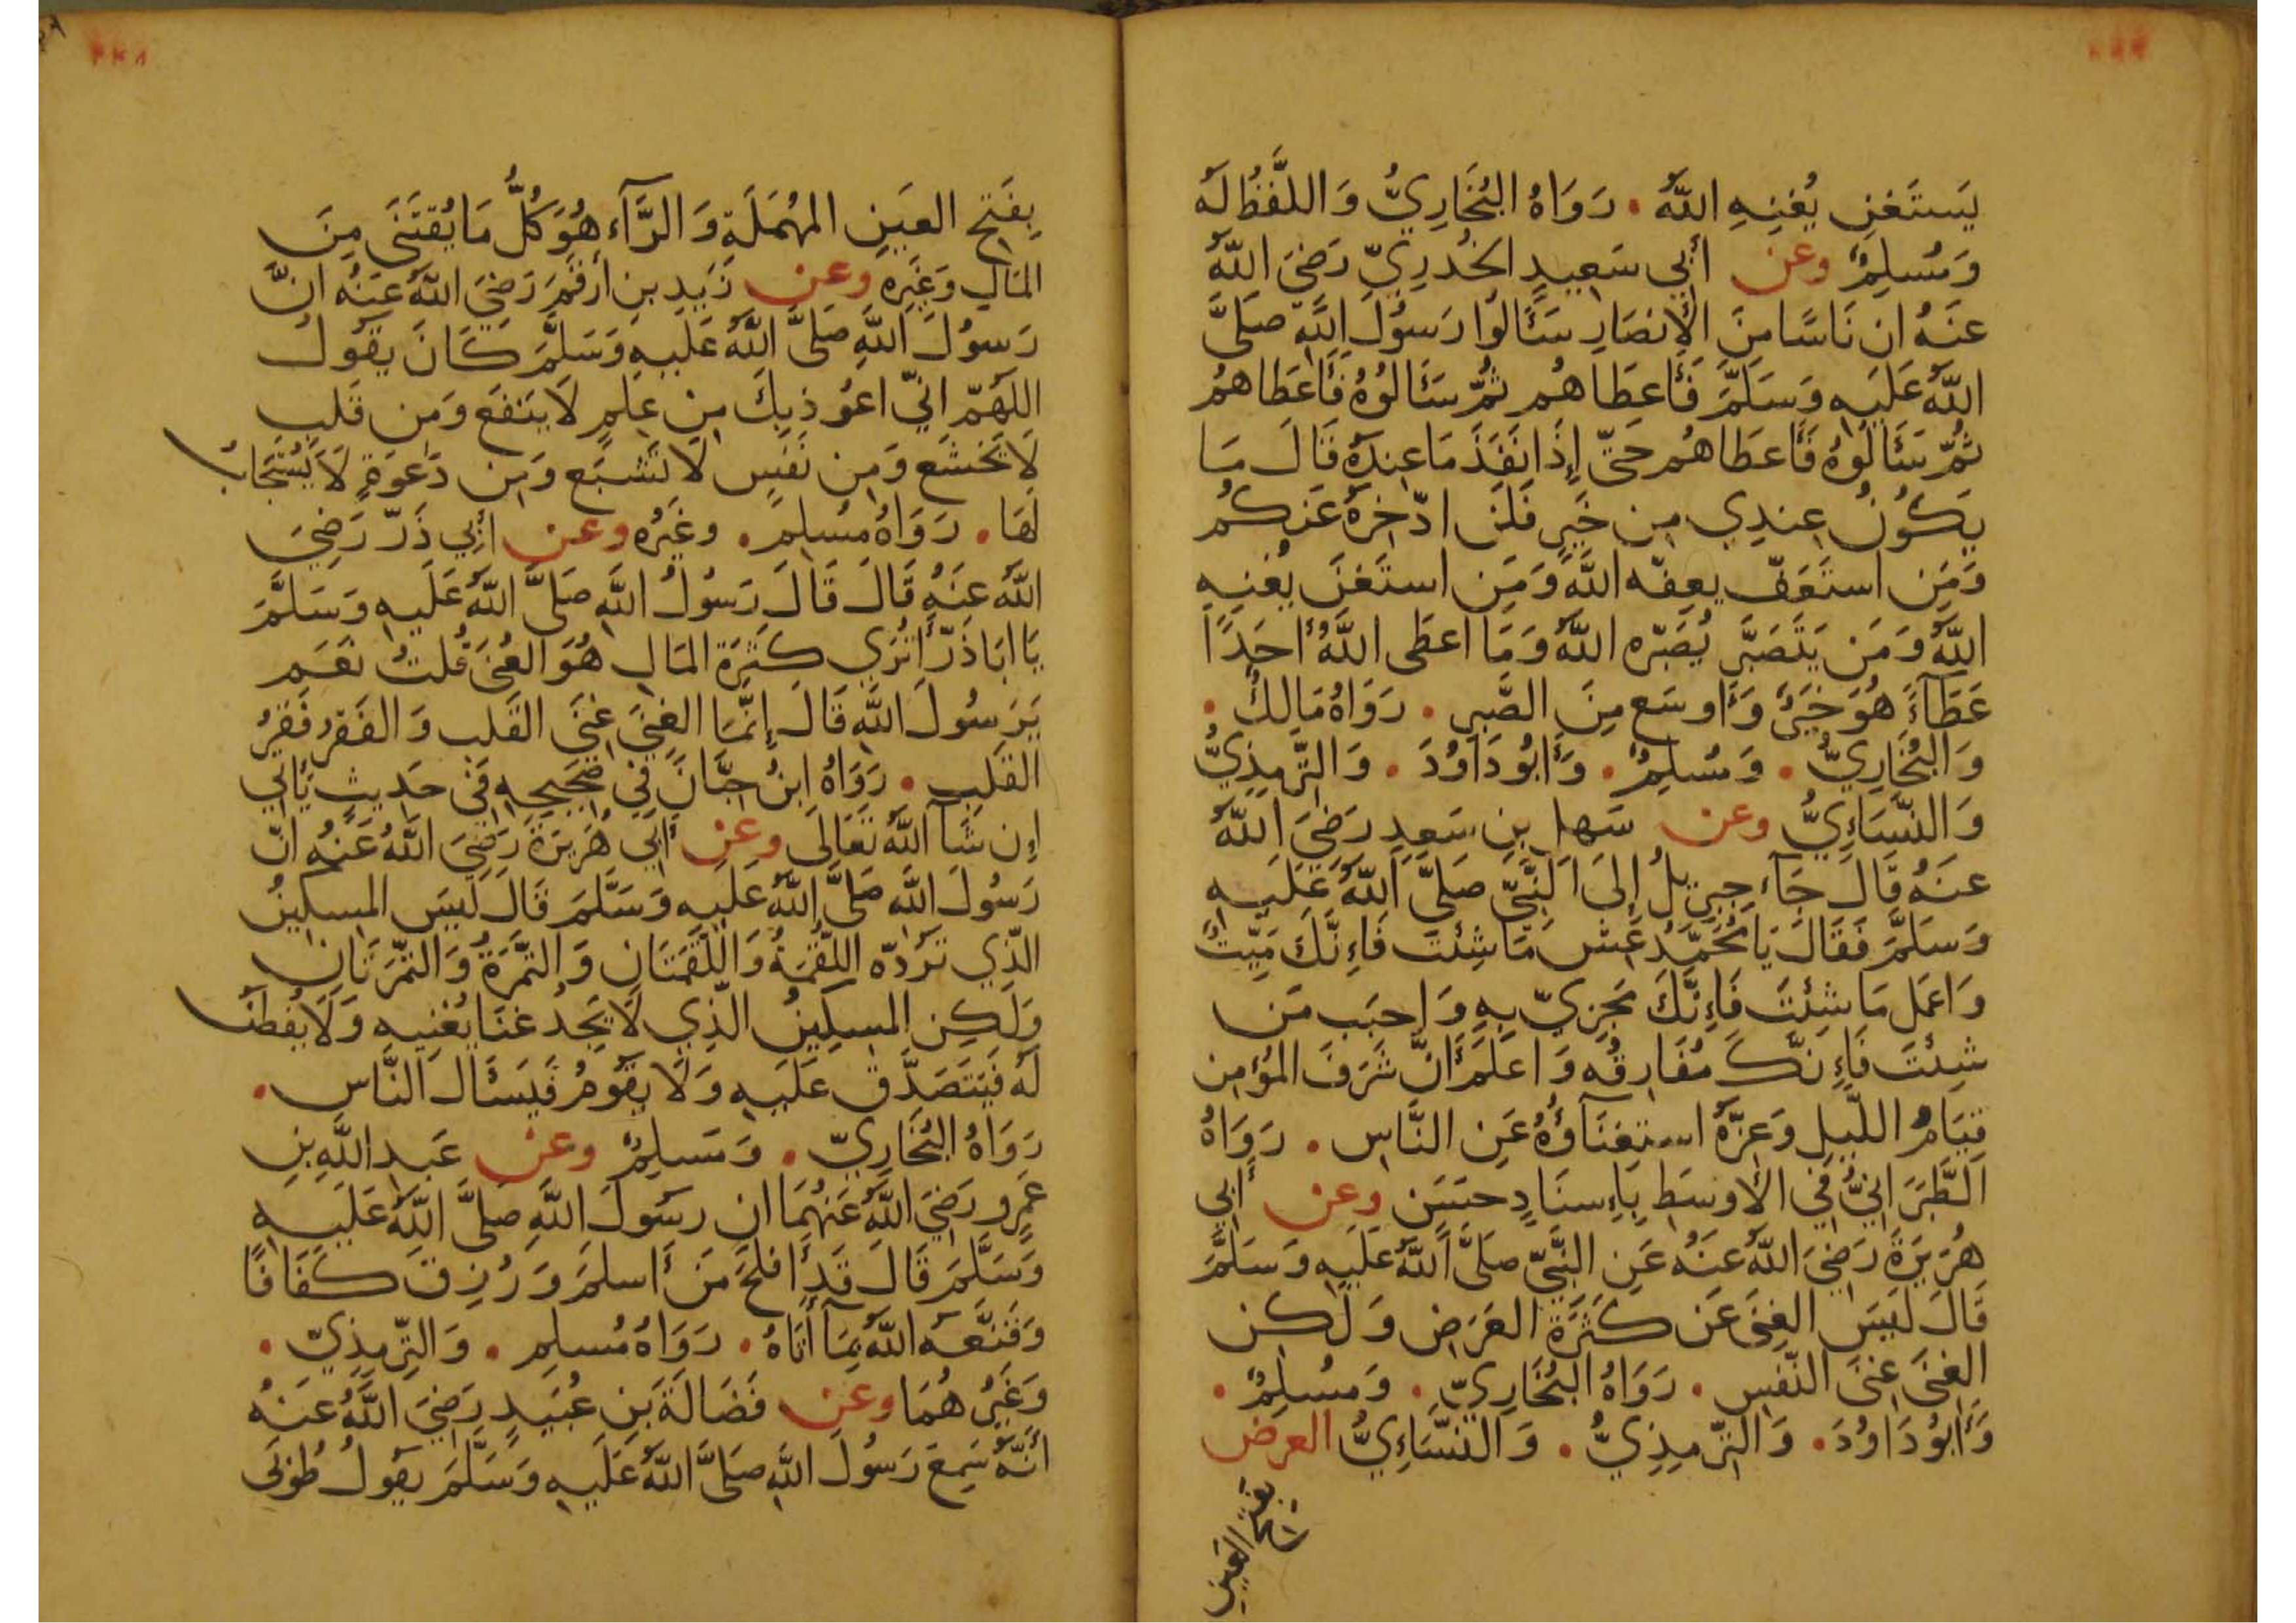 يَستَغنِ يُغنِهِ اللّٰهُ • رَوَاهُ البُخَارِيُّ وَاللَّفظُ لَهُ
وَمُسلِمٌ وعن أَبِي سَعِيدِ الخُدرِيِّ رَضِيَ اللّٰهُ
عنَهُ ان نَاسًا مِنَ الأَنصَارِ سَئَالُوا رَسُولَ اللّٰهِ صَلَّى
اللّٰهُ عَلَيهِ وَسَلَّمَ فَأَعطَاهُم ثُمَّ سَئَالُوهُ فَأَعطَاهُم
ثُمَّ سَئَالُوهُ فَأَعطَاهُم حَتّى إِذَا نَفَذَ مَا عِندَهُ قَالَ مَا
يَكُونُ عِندِي مِن خَيرٍ فَلَن ادّخِرهُ عَنكُم
وَمَنِ استَعَفّ يعِفّه اللّٰهُ وَمَنِ استَغنَ يُغنِهِ
اللّٰهُ وَمَن يَتَصَبَّر يُصَبّره اللّٰهُ وَمَا اعطَى اللّٰهُ احَدًا
عَطَآءً هُوَ خَيرٌ وَأَوسَع مِنَ الصَّبرِ • رَوَاهُ مَالِكٌ •
وَالبُخَارِيُّ • وَمُسلِمٌ • وَأَبُو دَاوُدَ • وَالتِّرمِذِيُّ
وَالنَّسَاءِيُّ وعن سَهلِ بنِ سَعدِ رَضِيَ اللّٰهُ
عنَهُ قَالَ جَآءَ جِبرِيلُ إِلَى النَّبِيّ صَلَّى اللّٰهُ عَلَيهِ
وَسَلَّمَ فَقَالَ يَا مُحَمَّدُ عَش مَا شِئتَ فَإِنَّكَ مَيِّتٌ
وَاعمَل مَا شِئتَ فَإِنَّكَ مَجزِيّ بِهِ وَاحبَب مَن
شِئتَ فَإِنَّكَ مُفَارِقُه وَاعلَم أَنَّ شَرَفَ المُؤمِن
قِيَامُ اللَّيلِ وَعِزَّهُ استِغنَآؤُهُ عَنِ النَّاسِ • رَوَاهُ
الطَّبَرَانِيُّ فِي الأَوسَط بِإِسنَادٍ حسَن وعن أَبِي
هُرَيرَةَ رَضِيَ اللّٰهُ عنَهُ عَنِ النَّبِيّ صَلَّى اللّٰهُ عَلَيهِ وَسَلَّمَ
قَالَ لَيسَ الغِنَى عَن كَثرَةِ العَرَضِ وَلَكن
الغِنَى غِنَى النَّفسِ • رَوَاهُ البُخَارِيّ • وَمُسلِمٌ •
وَأَبُو دَاوُدَ • وَالتِّرمِذِيُّ • وَالنَّسَاءِيُّ العرض
بفتح العين
بِفَتحِ العَينِ المُهمَلَةِ وَالرَّآءِ هُوَ كُلُّ مَا يُقتَنَى مِنَ
المَالِ وَغَيرِهِ وعن زَيدِ بنِ أَرقَمَ رَضِيَ اللّٰهُ عَنهُ انَّ
رَسُولَ اللّٰهِ صَلَّى اللّٰهُ عَلَيهِ وَسَلَّمَ كَانَ يَقُولُ
اللّهُمّ انِّي اعوُذِبِكَ مِن عِلمٍ لَا يَنفَع وَمِن قَلبٍ
لَا يَخشَع وَمِن نَفسٍ لَا تَشبَع وَمِن دَعوَةٍ لَا يُستَجَابُ
لَهَا • رَوَاهُ مُسلِم • وغَيرُه وعن أَبِي ذَرّ رَضِيَ
اللّٰهُ عنَهُ قَالَ قَالَ رَسُولُ اللّٰهِ صَلَّى اللّٰهُ عَلَيهِ وَسَلَّمَ
يَا ابَا ذَرّ أَتَرَي كَثرَة المَالِ هُوَ الغِنَى قُلتُ نَعَم
يَرَسُولَ اللّٰهِ قَالَ إِنَّمَا الغِنَى غِنَى القَلب وَالفَقرُ فَقرُ
القَلبِ • رَوَاهُ ابنُ حِبَّانَ فِي صَحِيحِهِ فِي حَدِيثٍ يَأتِي
إِن شَآ اللّٰهُ تَعَالَى وعن أَبِي هُرَيرَةَ رَضِيَ اللّٰهُ عَنهُ انّ
رَسُولَ اللّٰهِ صَلَّى اللّٰهُ عَلَيهِ وَسَلَّمَ قَالَ لَيسَ المِسكِينُ
الّذِي تَرُدّه اللّقمَةُ وَاللّقمَتَانِ وَالتَّمرَةُ وَالتَّمرَتَانِ
وَلَكِن المِسكِينُ الّذِي لَا يَجِدُ غنَا يُغنِيهِ وَلَا يُفطَنُ
لَهُ فَيَتَصَدَّق عَلَيهِ وَلَا يَقُومُ فَيَسَئَالَ النَّاس •
رَوَاهُ البُخَارِيّ • وَمسلِمٌ وعن عَبدِ اللّٰهِ بنِ
عَمرٍو رَضِيَ اللّٰهُ عَنهُمَا ان رسُولَ اللّٰهِ صَلَّى اللّٰهُ عَلَيهِ
وَسَلَّمَ قَالَ قَد أَفلَحَ مَن أَسلَمَ وَرُزِقَ كَفَافًا
وَقَنَّعَه اللّٰهُ بِمَآ أَتَاهُ • رَوَاهُ مُسلِم • وَالتِّرمِذِيّ •
وَغَيرُهُمَا وعن فَضَالَةَ بنِ عُبَيدٍ رَضِيَ اللّٰهُ عَنهُ
انَّهُ سَمِعَ رَسُولَ اللّٰهِ صَلَّى اللّٰهُ عَلَيهِ وَسَلَّمَ يَقُولُ طُوبَى